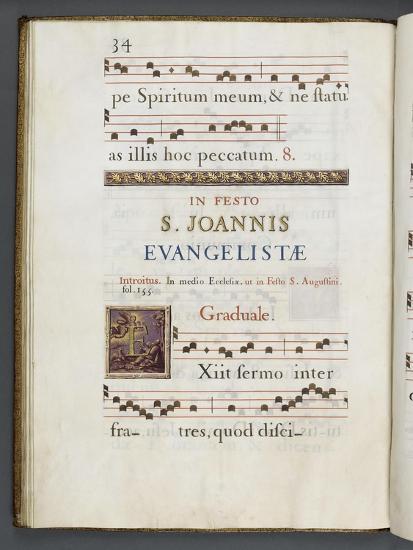 34
pe Spiritum meum, & ne ſtatu
as illis hoc peccatum. 8.
IN FESTO
S. JOANNIS
EVANGELISTÆ
Introitus. In medio Eccleſiæ, ut in Feſto S. Auguſtini.
fol. 155.
Graduale.
Xiit ſermo inter
fra– tres, quod diſci–